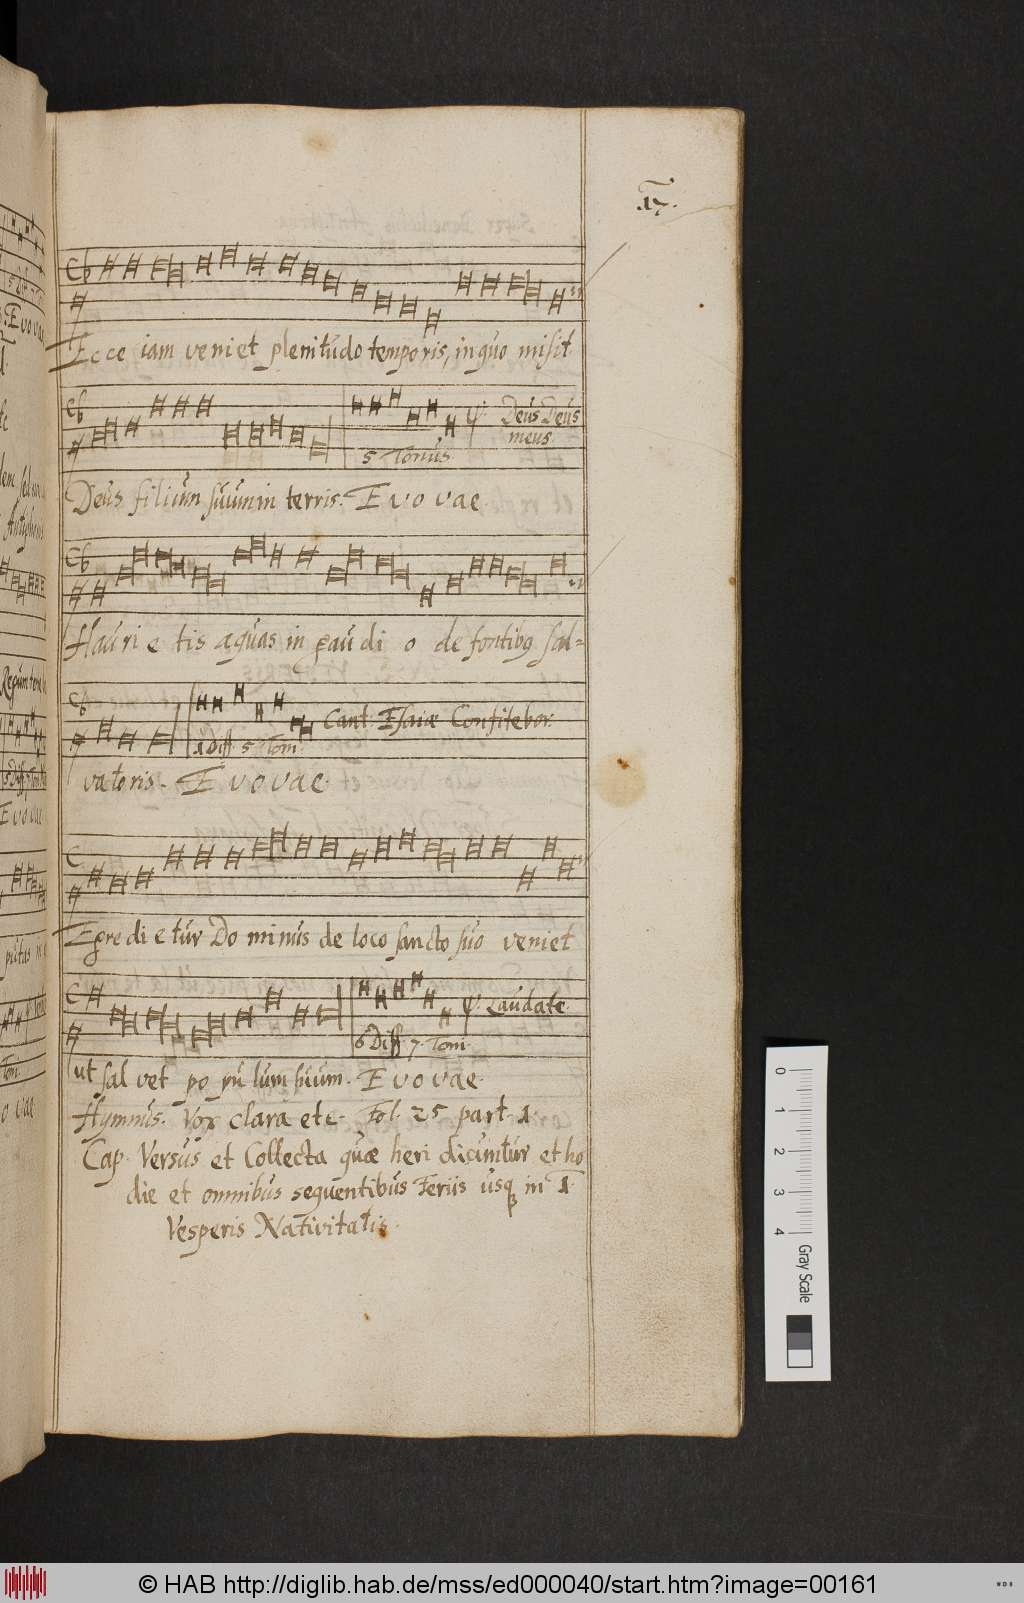 17.
Ecce iam veniet plenitudo temporis, in quo misit
Deus Deus
meus
5 Tonus
Deus filium suum in terris. E v o v a e.
Hauri e tis aquas in gau di o de fontibq sal=
Cant. Esaiæ Confitebor.
1 Diff. 5 Toni
vatoris. E v o v a e.
Egredi e tur Do minus de loco sancto suo veniet
Laudate.
6 Diff 7. Toni
ut sal vet po pu lum suum. E v o v a e.
Hymnus. Vox clara etc. Fol. 25 part. 1
Cap. Versus et Collecta quæ heri dicuntur et ho
die et omnibus sequentibus Feriis usq in 1.
Vesperis Nativitatis.
0
1
2
3
4
Gray Scale
© HAB http://diglib.hab.de/mss/ed000040/start.htm?image=00161